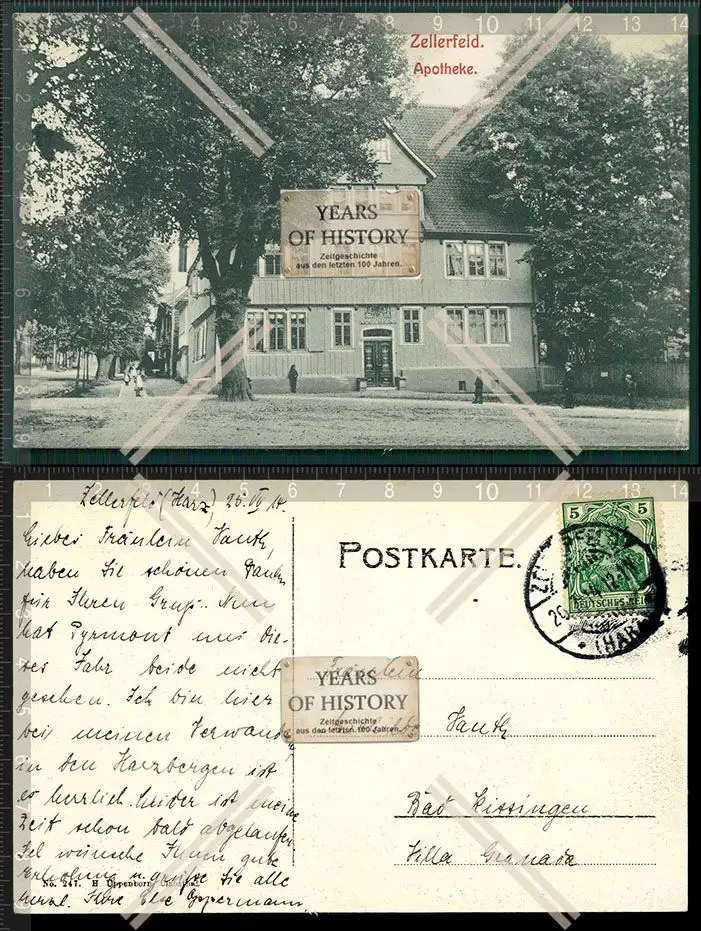 Zellerfeld.
Apotheke.
YEARS
OF HISTORY
Zeitgeschichte
aus den letzten 100 Jahren.
Zellerfeld (Harz), 25. IV
Liebes Fräulein Vauth,
haben Sie schönen Dank
für Ihren Gruß. Nun
hat Pyrmont uns die-
ses Jahr beide nicht
gesehen. Ich bin hier
bei meinen Verwand
in den Harzbergen ist
es herrlich. Leider ist meine
Zeit schon bald abgelaufen.
Ich wünsche Ihnen gute
Erholung u. grüße Sie alle
herzl. Ihre Else Oppermann.
No. 247. H. Uppenborn, Clausthal.
POSTKARTE.
5 5
DEUTSCHES REICH
(HARZ)
Fräulein
YEARS
OF HISTORY
Zeitgeschichte
aus den letzten 100 Jahren.
Vauth
Bad Kissingen
Villa Granada